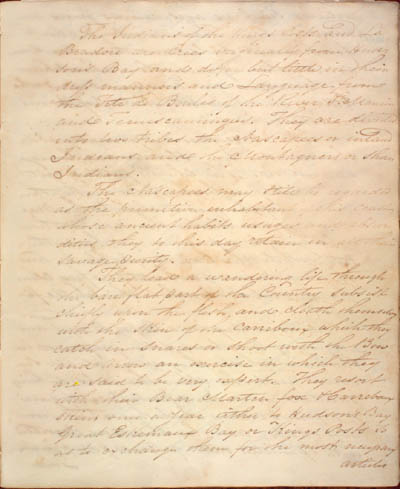 The Indians of the Kings Posts and La
Brador are tribes originally from Hud
sons Bay and differ but little in their
dress manners and Language from
the Tête de Boules of the River
and Temiscamingue. They are divided
into two tribes the Nascapees or inland
Indians and the Montagners or Shore
Indians.
The Nascapees may still be regarded
as the primitive inhabitan
whose ancient habits usages and
dities they to this day retain in all their
savage purity.
They lead a wandering life through
the bare flat part of the Country subsist
chiefly upon the flesh, and cloth themselves
with the skin of the Carribou which they
catch in snares or shoot with the Bow
and arrow an exercise in which they
are said to be very expert. They resort
with their Bear Marten fox & Carribou
skins once a year either to Hudsons Bay
Great Esquimaux Bay or Kings Posts
as to exchange them for the most necessary
articles